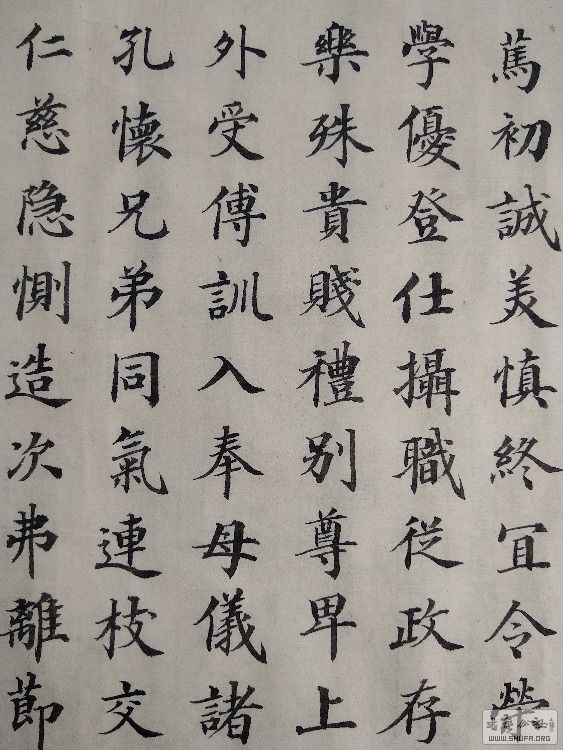 篤初誠美慎終宜令榮
學優登仕攝職從政存
樂殊貴賤禮別尊卑上
外受傅訓入奉母儀諸
孔懷兄弟同氣連枝交
仁慈隐惻造次弗離節
WWW.SHUFA.ORG